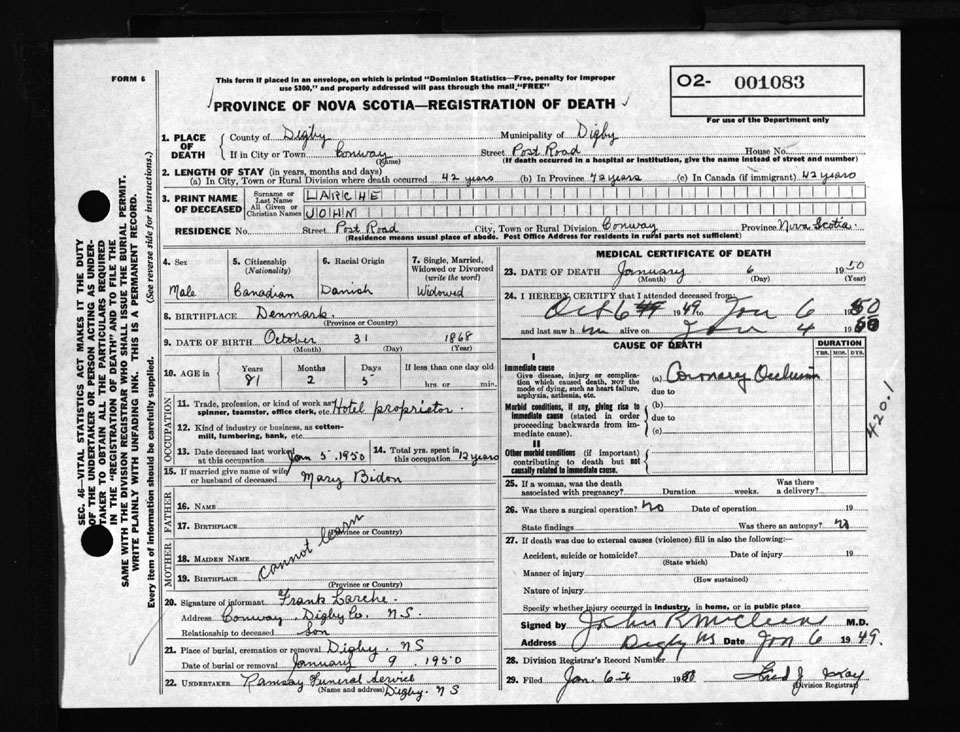 FORM 6
This form if placed in an envelope, on which is printed "Dominion Statistics—Free, penalty for improper
use $300," and properly addressed will pass through the mail, "FREE"
PROVINCE OF NOVA SCOTIA—REGISTRATION OF DEATH
O2- 001083
For use of the Department only
SEC. 46—VITAL STATISTICS ACT MAKES IT THE DUTY
OF THE UNDERTAKER OR PERSON ACTING AS UNDER-
TAKER TO OBTAIN ALL THE PARTICULARS REQUIRED
IN THE "REGISTRATION OF DEATH" AND TO FILE THE
SAME WITH THE DIVISION REGISTRAR WHO SHALL ISSUE THE BURIAL PERMIT.
WRITE PLAINLY WITH UNFADING INK. THIS IS A PERMANENT RECORD.
Every item of information should be carefully supplied. (See reverse side for instructions.)
1. PLACE OF DEATH
County of Digby Municipality of Digby
If in City or Town Conway Street Post Road House No.
(Name) (If death occurred in a hospital or institution, give the name instead of street and number)
2. LENGTH OF STAY (in years, months and days)
(a) In City, Town or Rural Division where death occurred 42 years (b) In Province 42 years (c) In Canada (if immigrant) 42 years
3. PRINT NAME OF DECEASED
Surname or Last Name LARCHE
All Given or Christian Names JOHN
RESIDENCE No. Street Post Road City, Town or Rural Division Conway Province Nova Scotia.
(Residence means usual place of abode. Post Office Address for residents in rural parts not sufficient)
4. Sex
Male
5. Citizenship (Nationality)
Canadian
6. Racial Origin
Danish
7. Single, Married, Widowed or Divorced (write the word)
Widowed
8. BIRTHPLACE Denmark
(Province or Country)
9. DATE OF BIRTH October 31 1868
(Month) (Day) (Year)
10. AGE in Years Months Days If less than one day old
81 2 5 hrs. or min.
OCCUPATION
11. Trade, profession, or kind of work as spinner, teamster, office clerk, etc. Hotel proprietor.
12. Kind of industry or business, as cotton-mill, lumbering, bank, etc.
13. Date deceased last worked at this occupation Jan 5 1950
14. Total yrs. spent in this occupation 15 years
15. If married give name of wife or husband of deceased Mary Bidon
FATHER
16. NAME
17. BIRTHPLACE
(Province or Country)
MOTHER
18. MAIDEN NAME
19. BIRTHPLACE
(Province or Country)
cannot learn
20. Signature of informant Frank Larche.
Address Conway, Digby Co. N.S.
Relationship to deceased Son
21. Place of burial, cremation or removal Digby. NS
Date of burial or removal January 9, 1950
22. UNDERTAKER Ramsay Funeral Service
(Name and address) Digby. N S
MEDICAL CERTIFICATE OF DEATH
23. DATE OF DEATH January 6 1950
(Month) (Day) (Year)
24. I HEREBY CERTIFY that I attended deceased from:
Oct 6 1949 to Jan 6 1950
and last saw him alive on Jan 4 1950
CAUSE OF DEATH
DURATION
YRS. MOS. DYS.
I
Immediate cause
Give disease, injury or complication which caused death, NOT the mode of dying, such as heart failure, asphyxia, asthenia, etc.
(a) Coronary Occlusion
due to
Morbid conditions, if any, giving rise to immediate cause (stated in order proceeding backwards from immediate cause).
(b)
due to
(c)
II
Other morbid conditions (if important) contributing to death but not causally related to immediate cause.
420.1
25. If a woman, was the death associated with pregnancy? Duration weeks. Was there a delivery?
26. Was there a surgical operation? No Date of operation 19
State findings Was there an autopsy? No
27. If death was due to external causes (violence) fill in also the following:—
Accident, suicide or homicide? Date of injury 19
(State which)
Manner of injury
(How sustained)
Nature of injury
Specify whether injury occurred in industry, in home, or in public place
Signed by M.D.
Address Digby NS Date Jan 6 1949.
28. Division Registrar's Record Number
29. Filed Jan. 6th 19
Division Registrar